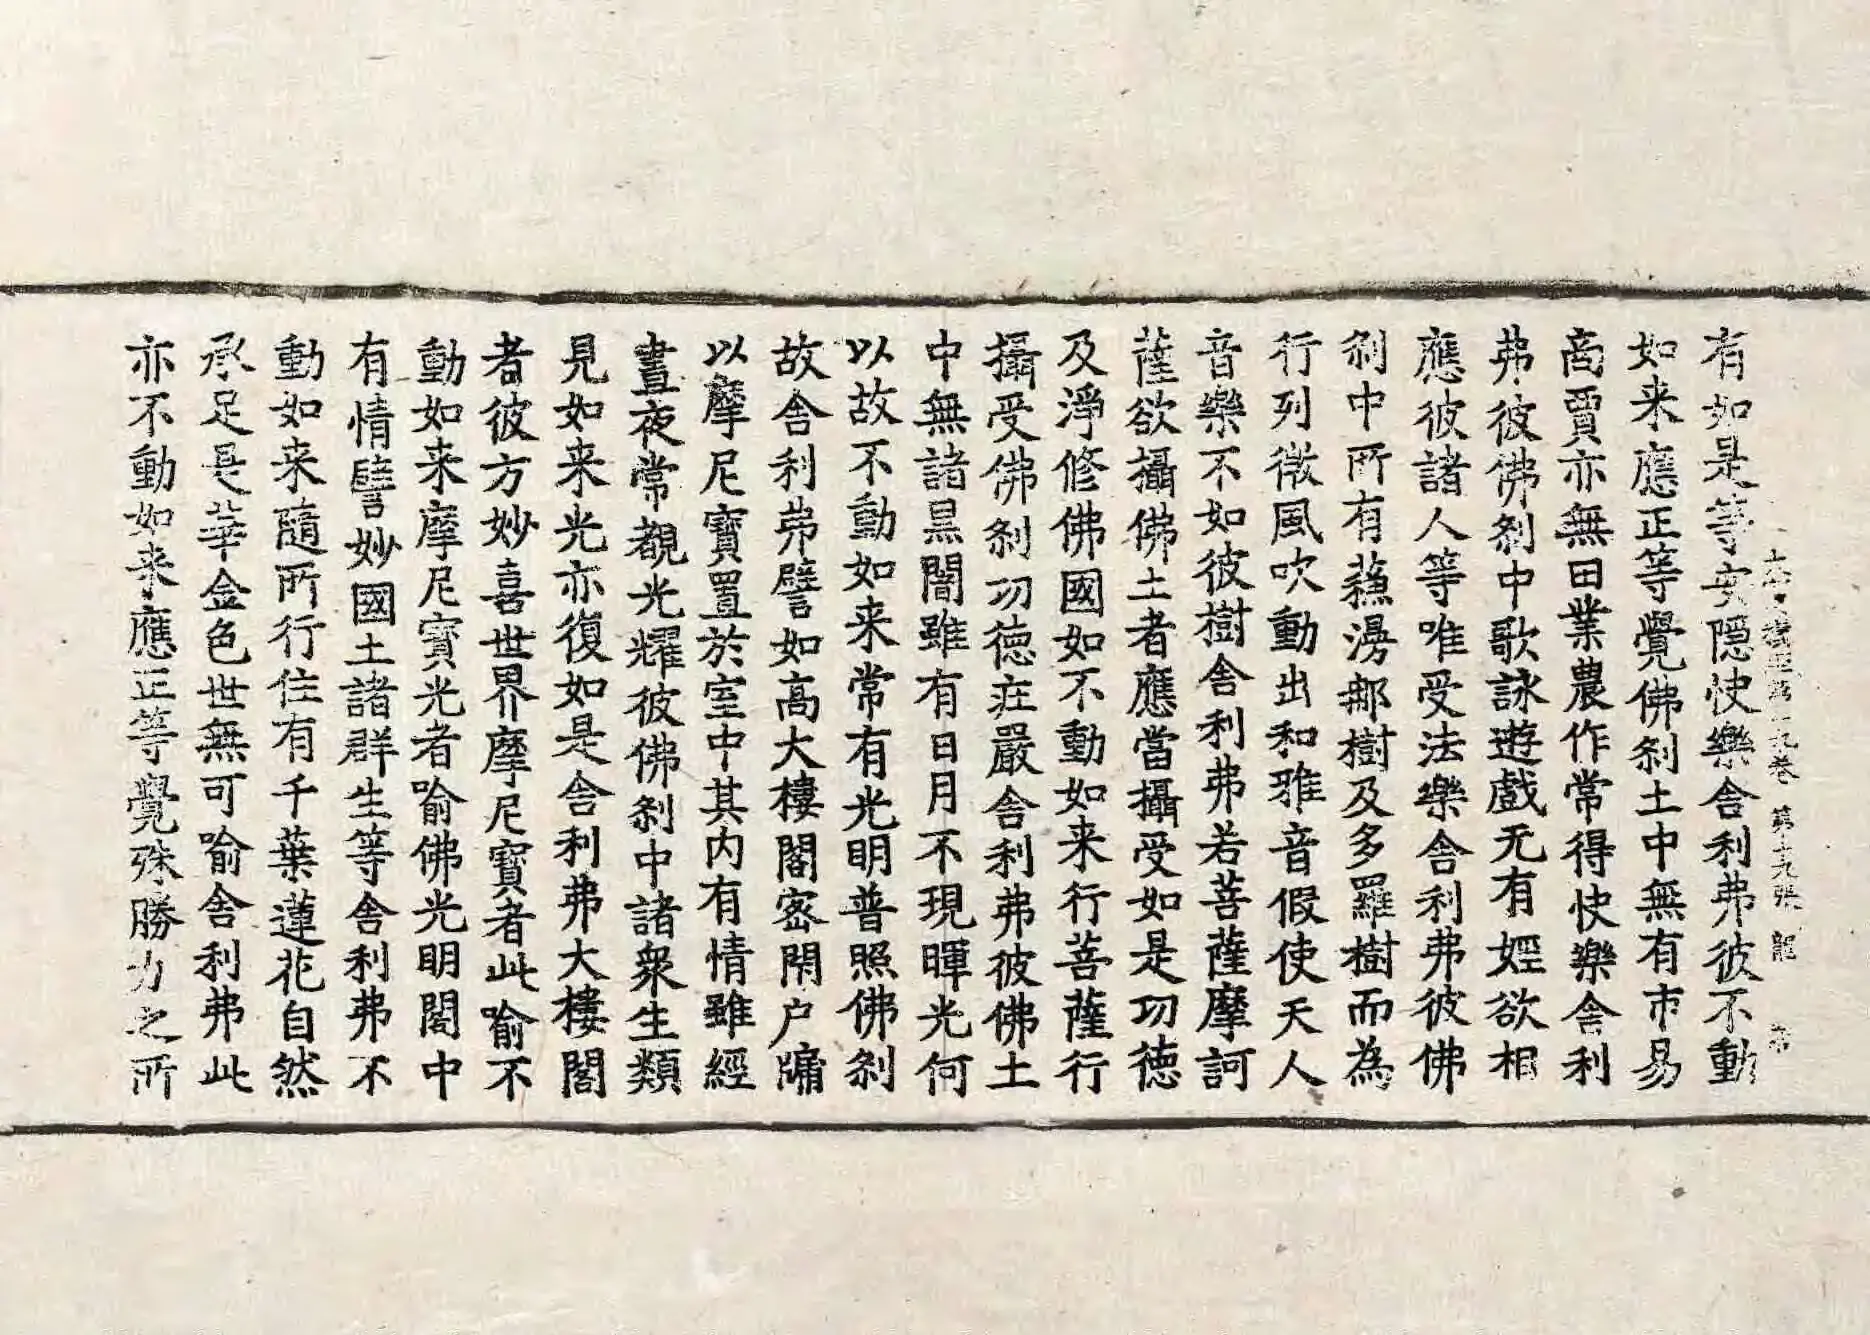 有如是等安隱快樂舍利弗彼不動
如来應正等覺佛刹土中無有市易
商賈亦無田業農作常得快樂舍利
弗彼佛刹中歌詠遊戲无有婬欲相
應彼諸人等唯受法樂舍利弗彼佛
刹中所有蘓漫那樹及多羅樹而為
行列微風吹動出和雅音假使天人
音樂不如彼樹舍利弗若菩薩摩訶
薩欲攝佛土者應當攝受如是功德
及淨修佛國如不動如来行菩薩行
攝受佛刹功德庄嚴舍利弗彼佛土
中無諸黒闇雖有日月不現暉光何
以故不動如来常有光明普照佛刹
故舍利弗譬如高大樓閣密閇户牖
以摩尼寶置於室中其内有情雖經
晝夜常覩光耀彼佛刹中諸衆生類
見如来光亦復如是舍利弗大樓閣
者彼方妙喜世界摩尼寶者此喻不
動如来摩尼寶光者喻佛光明閣中
有情譬妙國土諸群生等舍利弗不
動如来隨所行住有千葉蓮花自然
承足是華金色世無可喻舍利弗此
亦不動如来應正等覺殊勝力之所